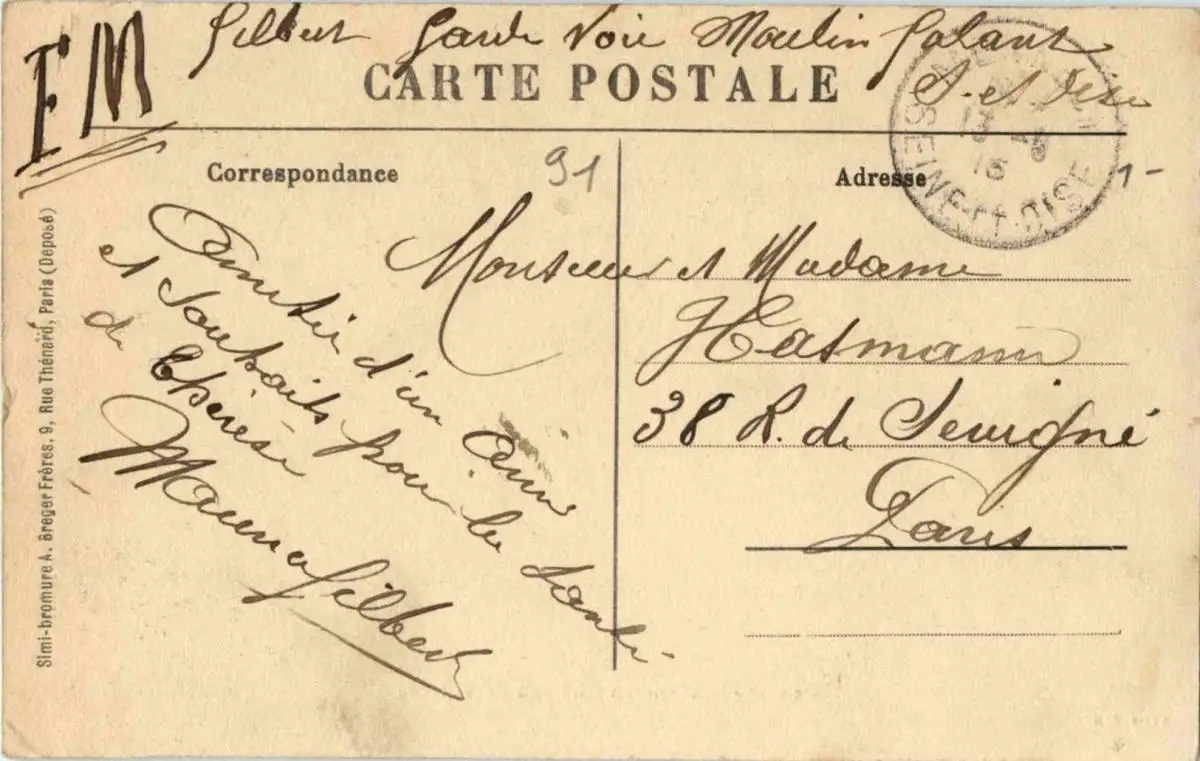 FM
Gilbert Garde Voie Moulin Galant
S. et Oise
CARTE POSTALE
Correspondance
91
Adresse
1-
13 -5
15
SEINE-ET-OISE
Amitié d'un ami
et Souhaits pour la Santé
de Thérèse
Gilbert
Monsieur et Madame
Hatmann
38 R. de Sevigné
Paris
Simi-bromure A. Breger Frères. 9, Rue Thénard, Paris (Déposé)